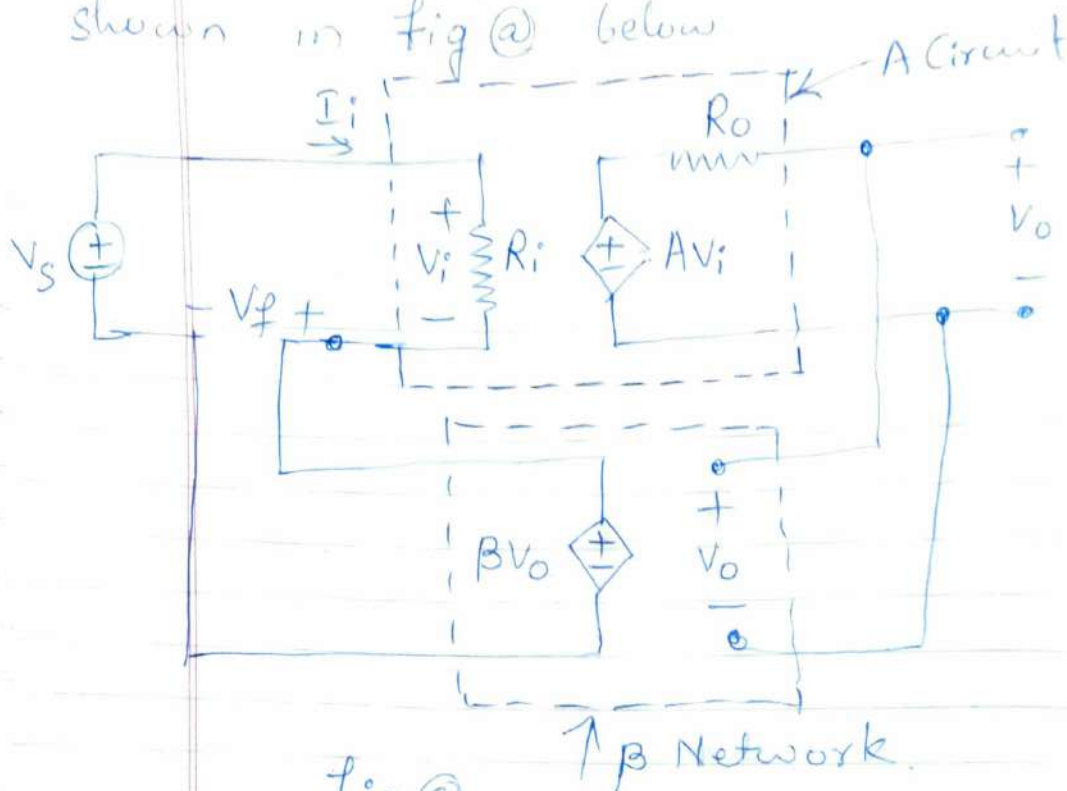 shown in fig (a) below
A Circuit
Ii
Ro
+
+
Vs
+
-
Vi
Ri
+
-
AVi
Vo
- Vf +
-
-
+
βVo
+
-
Vo
-
β Network.
fig (a)